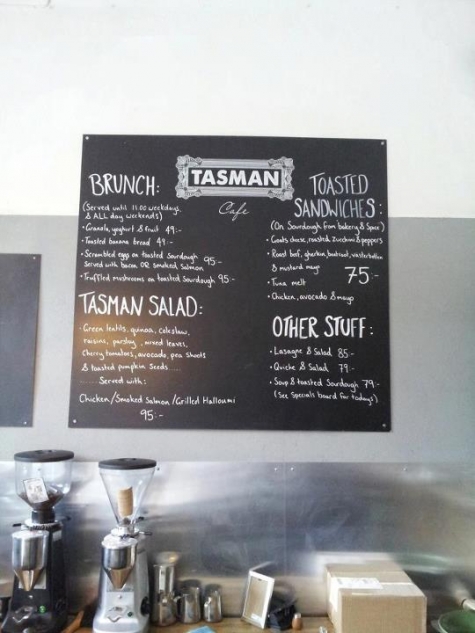 TASMAN
Cafe
BRUNCH:
(Served until 11.00 weekdays
& ALL day weekends)
• Granola, yoghurt & fruit 49:-
• Toasted banana bread 49:-
• Scrambled eggs on toasted Sourdough
Served with bacon OR smoked Salmon 95:-
• Truffled mushrooms on toasted Sourdough 95:-
TASMAN SALAD:
• Green lentils, quinoa, coleslaw,
raisins, parsley, mixed leaves,
Cherry tomatoes, avocado, pea shoots
& toasted pumpkin Seeds.....
......Served with:
Chicken/Smoked Salmon/Grilled Halloumi
95:-
TOASTED
SANDWICHES:
(On Sourdough from bakery & Spice)
• Goats cheese, roasted Zucchini & peppers
• Roast beef, gherkin, beetroot,
& mustard mayo 75:-
• Tuna melt
• Chicken, avocado & mayo
OTHER STUFF:
• Lasagne & Salad 85:-
• Quiche & Salad 79:-
• Soup & toasted Sourdough 79:-
(See Specials board for todays)